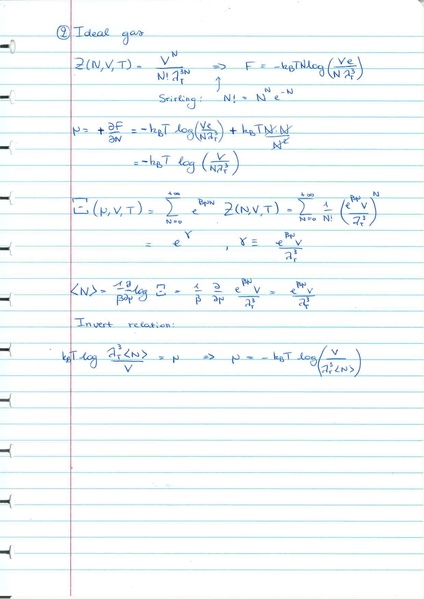 ② Ideal gas
Z(N,V,T) = V^N / (N! λ_T^{3N}) ⇒ F = -k_B T N log(Ve / (N λ_T^3))
↑
Stirling: N! = N^N e^{-N}
μ = + ∂F/∂N = -k_B T log(Ve / (N λ_T^3)) + k_B T N·N / N^2
= -k_B T log(V / (N λ_T^3))
Ξ(μ,V,T) = Σ_{N=0}^{+∞} e^{βμN} Z(N,V,T) = Σ_{N=0}^{+∞} 1/N! (e^{βμ} V / λ_T^3)^N
= e^γ , γ ≡ e^{βμ} V / λ_T^3
<N> = 1/β ∂/∂μ log Ξ = 1/β ∂/∂μ e^{βμ} V / λ_T^3 = e^{βμ} V / λ_T^3
Invert relation:
k_B T log λ_T^3 <N> / V = μ ⇒ μ = -k_B T log(V / (λ_T^3 <N>))